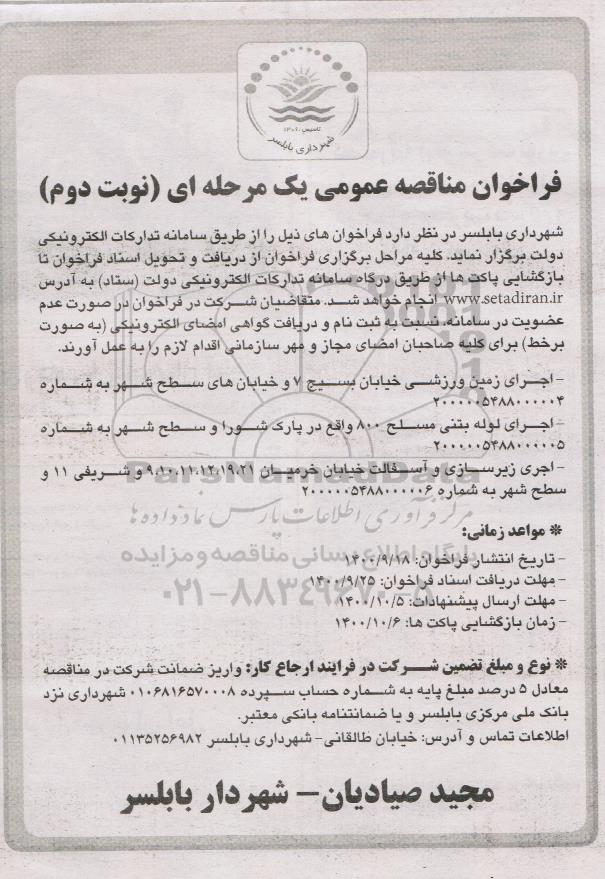 تاسیس: ۱۳۰۶
شهرداری بابلسر
فراخوان مناقصه عمومی یک مرحله ای (نوبت دوم)
شهرداری بابلسر در نظر دارد فراخوان های ذیل را از طریق سامانه تدارکات الکترونیکی
دولت برگزار نماید. کلیه مراحل برگزاری فراخوان از دریافت و تحویل اسناد فراخوان تا
بازگشایی پاکت ها از طریق درگاه سامانه تدارکات الکترونیکی دولت (ستاد) به آدرس
www.setadiran.ir انجام خواهد شد. متقاضیان شرکت در فراخوان در صورت عدم
عضویت در سامانه، نسبت به ثبت نام و دریافت گواهی امضای الکترونیکی (به صورت
برخط) برای کلیه صاحبان امضای مجاز و مهر سازمانی اقدام لازم را به عمل آورند.
- اجرای زمین ورزشی خیابان بسیج ۷ و خیابان های سطح شهر به شماره
۲۰۰۰۰۰۵۴۸۸۰۰۰۰۰۴
- اجرای لوله بتنی مسلح ۸۰۰ واقع در پارک شورا و سطح شهر به شماره
۲۰۰۰۰۰۵۴۸۸۰۰۰۰۰۵
- اجری زیرسازی و آسفالت خیابان خرمیان ۹،۱۰،۱۱،۱۲،۱۹،۲۱ و شریفی ۱۱ و
سطح شهر به شماره ۲۰۰۰۰۰۵۴۸۸۰۰۰۰۰۶
ParsNamadData
مرکز فرآوری اطلاعات پارس نماد داده ها
* مواعد زمانی:
پایگاه اطلاع رسانی مناقصه و مزایده
- تاریخ انتشار فراخوان: ۱۴۰۰/۹/۱۸
- مهلت دریافت اسناد فراخوان: ۱۴۰۰/۹/۲۵
۰۲۱-۸۸۳۴۹۶۷۰-۵
- مهلت ارسال پیشنهادات: ۱۴۰۰/۱۰/۵
- زمان بازگشایی پاکت ها: ۱۴۰۰/۱۰/۶
* نوع و مبلغ تضمین شرکت در فرایند ارجاع کار: واریز ضمانت شرکت در مناقصه
معادل ۵ درصد مبلغ پایه به شماره حساب سپرده ۰۱۰۶۸۱۶۵۷۰۰۰۸ شهرداری نزد
بانک ملی مرکزی بابلسر و یا ضمانتنامه بانکی معتبر.
اطلاعات تماس و آدرس: خیابان طالقانی- شهرداری بابلسر ۰۱۱۳۵۲۵۶۹۸۲
مجید صیادیان- شهردار بابلسر